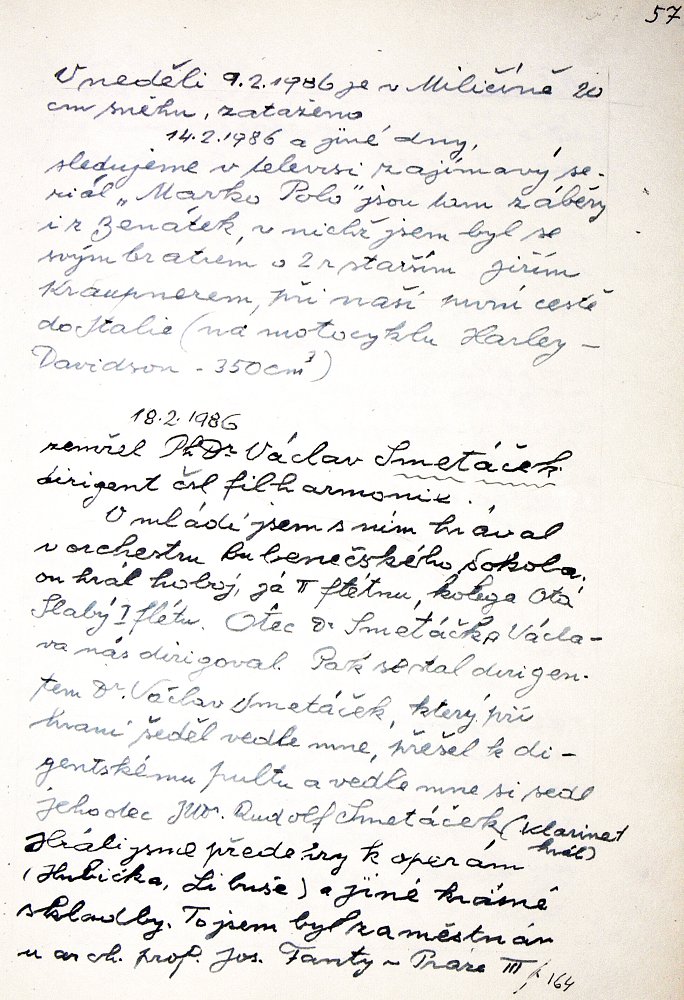 57
V neděli 9.2.1986 je v Miličíně 20
cm sněhu, zataženo
14.2.1986 a jiné dny,
sledujeme v televisi zajímavý se-
riál „Marko Polo" jsou tam záběry
i z Benátek, v nichž jsem byl se
svým bratrem o 2 r starším Jiřím
Kraupnerem, při naší první cestě
do Italie (na motocyklu Harley –
Davidson - 350 cm³)
18.2.1986
zemřel PhDr Václav Smetáček
dirigent čsl filharmonie.
V mládí jsem s ním hrával
v orchestru bubenečského sokola,
on hrál hoboj, já II flétnu, kolega Ota
Slabý I flétu. Otec Dr Smetáčka Václa-
va nás dirigoval. Pak se stal dirigen-
tem Dr. Václav Smetáček, který při
hraní seděl vedle mne, přešel k di-
gentskému pultu a vedle mne si sedl
jeho otec JUDr. Rudolf Smetáček (klarinet
hrál)
Hráli jsme předehry k operám
(Hubička, Libuše) a jiné krásné
skladby. To jsem byl zaměstnán
u arch. prof. Jos. Fanty v Praze III
164